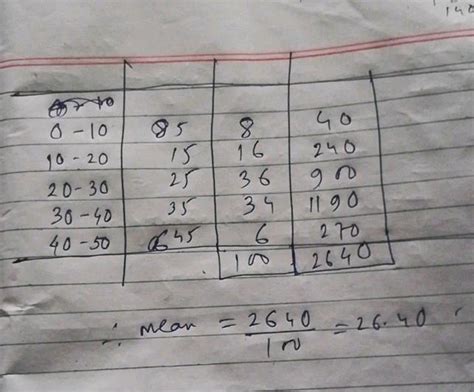 140
0-10 5 8 40
10-20 15 16 240
20-30 25 36 900
30-40 35 34 1190
40-50 45 6 270
100 2640
∴ mean = 2640/100 = 26.40